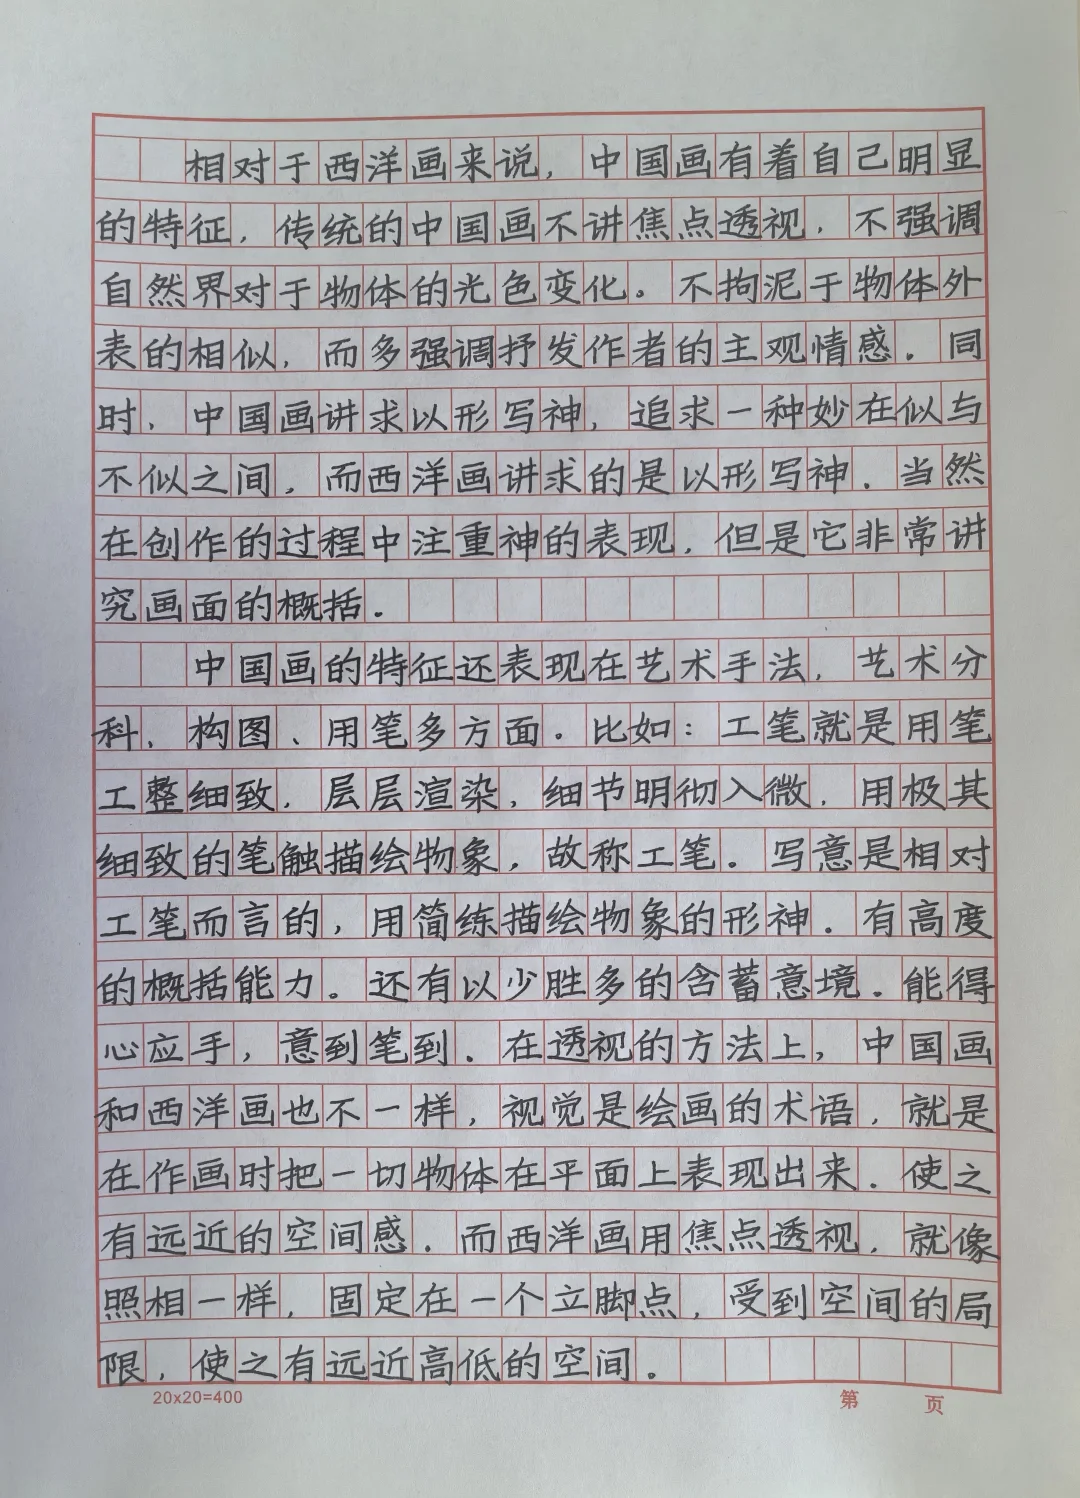 相对于西洋画来说,中国画有着自己明显
的特征,传统的中国画不讲焦点透视,不强调
自然界对于物体的光色变化。不拘泥于物体外
表的相似,而多强调抒发作者的主观情感.同
时,中国画讲求以形写神,追求一种妙在似与
不似之间,而西洋画讲求的是以形写神.当然
在创作的过程中注重神的表现,但是它非常讲
究画面的概括.
中国画的特征还表现在艺术手法,艺术分
科、构图、用笔多方面.比如:工笔就是用笔
工整细致,层层渲染,细节明彻入微,用极其
细致的笔触描绘物象,故称工笔.写意是相对
工笔而言的,用简练描绘物象的形神.有高度
的概括能力。还有以少胜多的含蓄意境.能得
心应手,意到笔到.在透视的方法上,中国画
和西洋画也不一样,视觉是绘画的术语,就是
在作画时把一切物体在平面上表现出来.使之
有远近的空间感.而西洋画用焦点透视,就像
照相一样,固定在一个立脚点,受到空间的局
限,使之有远近高低的空间.
20x20=400
第 页